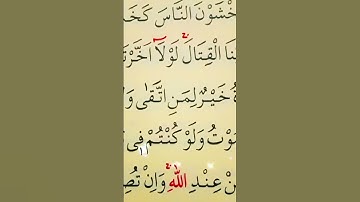 خْشَوْنَ النَّاسَ كَخَ
نَا الْقِتَالَ ۚ لَوْلَاۤ اَخَّرْتَ
ةُ خَيْرٌ لِّمَنِ اتَّقٰى وَلَ
مَوْتُ وَلَوْ كُنْتُمْ فِیْ
نْ عِنْدِ اللّٰهِ ۚ وَاِنْ تُصِ